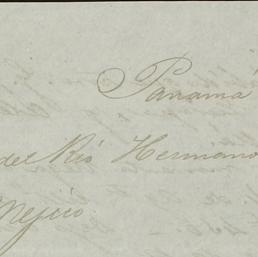 Panamá
del Rio Hermano
Mejico.